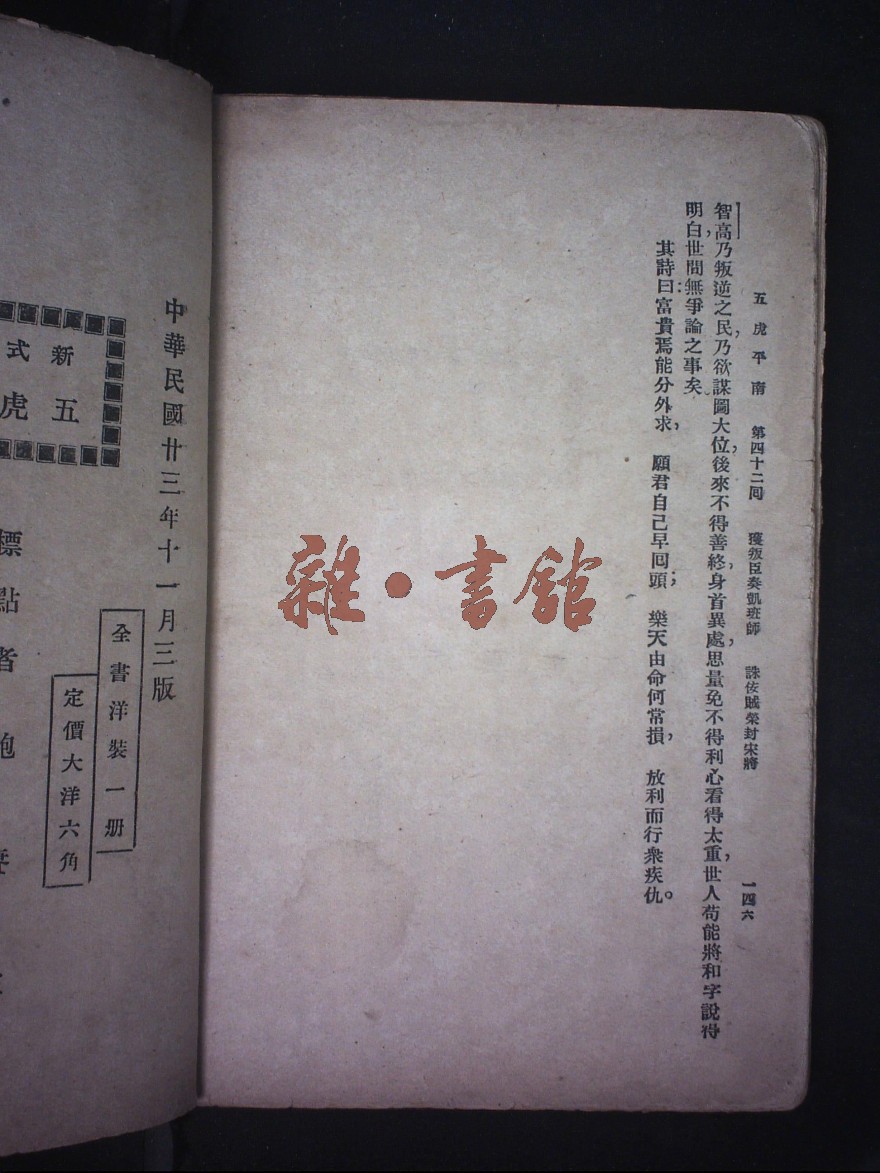 五虎平南 第四十二回 獲叛臣奏凱班師 誅侬賊榮封宋將 一四六
智高,乃叛逆之民,乃欲謀圖大位,後來不得善終,身首異處,思量免不得利心看得太重,世人苟能將和字說得
明白世間無爭論之事矣
其詩曰:富貴焉能分外求, 願君自己早回頭; 樂天由命何常損, 放利而行衆疾仇。
雜·書館
中華民國廿三年十一月三版
全書洋裝一册
定價大洋六角
新五
式虎
標點者鮑